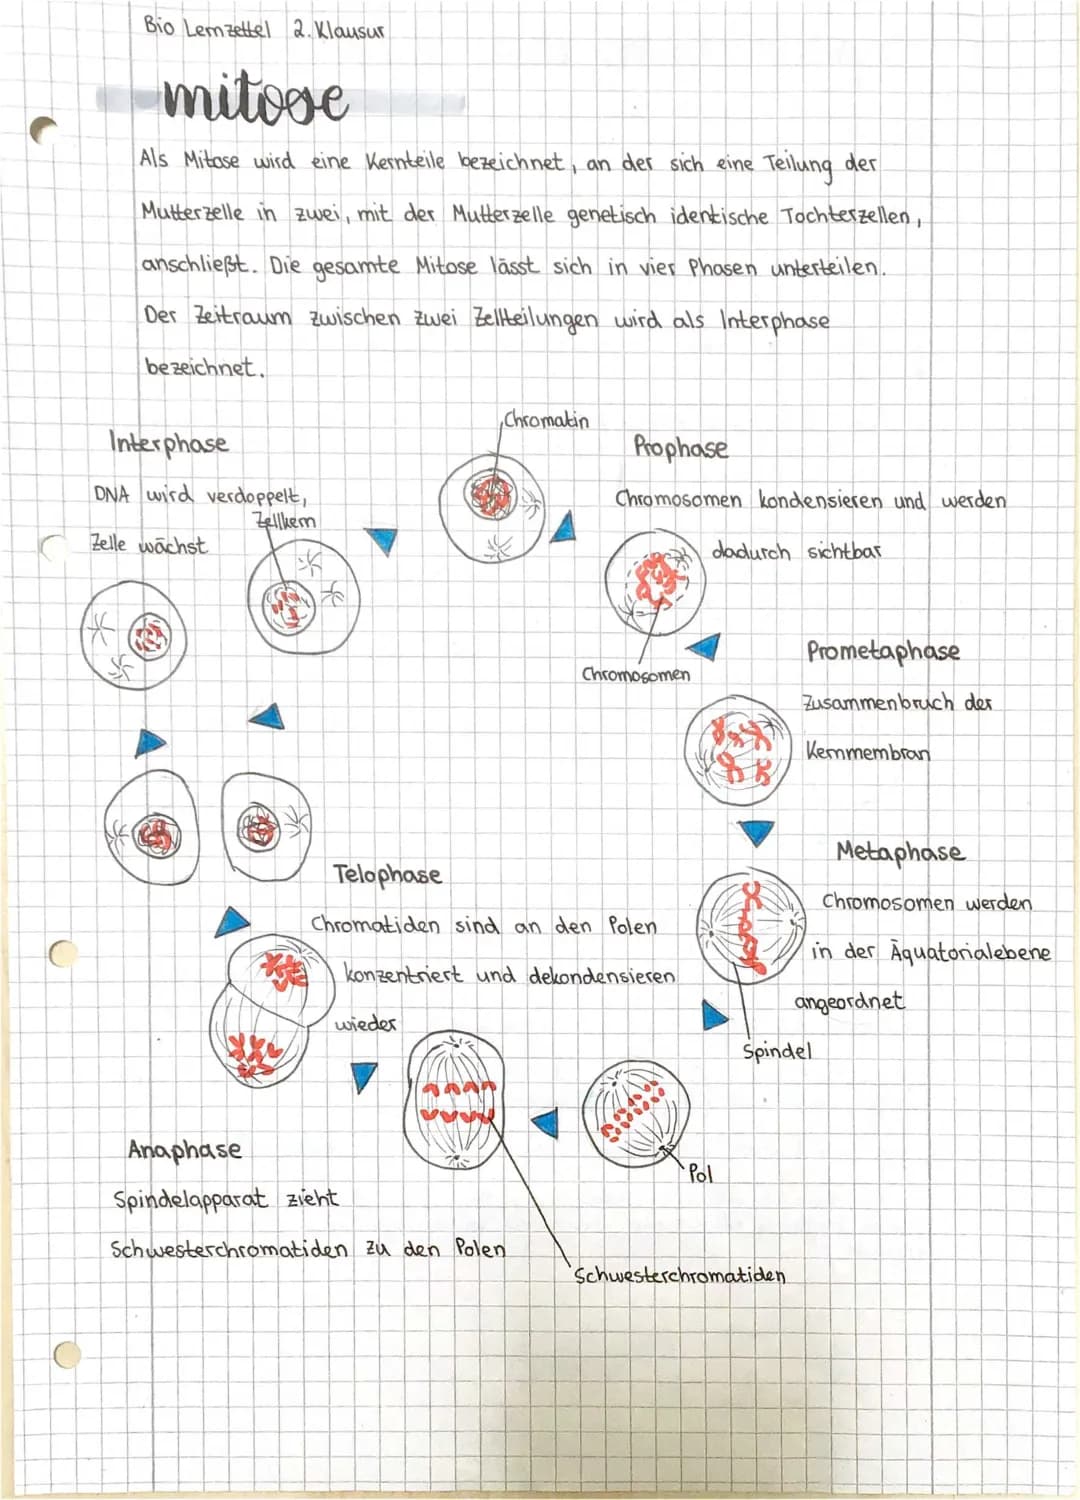 Bio Lernzettel 2. Klausur
mitose
Als Mitose wird eine Kernteile bezeichnet, an der sich eine Teilung der
Mutterzelle in zwei, mit der Mutterzelle genetisch identische Tochterzellen,
anschließt. Die gesamte Mitose lässt sich in vier Phasen unterteilen.
Der Zeitraum zwischen zwei Zellteilungen wird als Interphase
bezeichnet.
Chromatin
Interphase
DNA wird verdoppelt,
Zellkern
Zelle wächst
Prophase
Chromosomen kondensieren und werden
dadurch sichtbar
Chromosomen
Prometaphase
Zusammenbruch der
Kernmembran
Metaphase
Chromosomen werden
in der Äquatorialebene
angeordnet
Spindel
Telophase
Chromatiden sind an den Polen
konzentriert und dekondensieren
wieder
Pol
Anaphase
Spindelapparat zieht
Schwesterchromatiden zu den Polen
Schwesterchromatiden